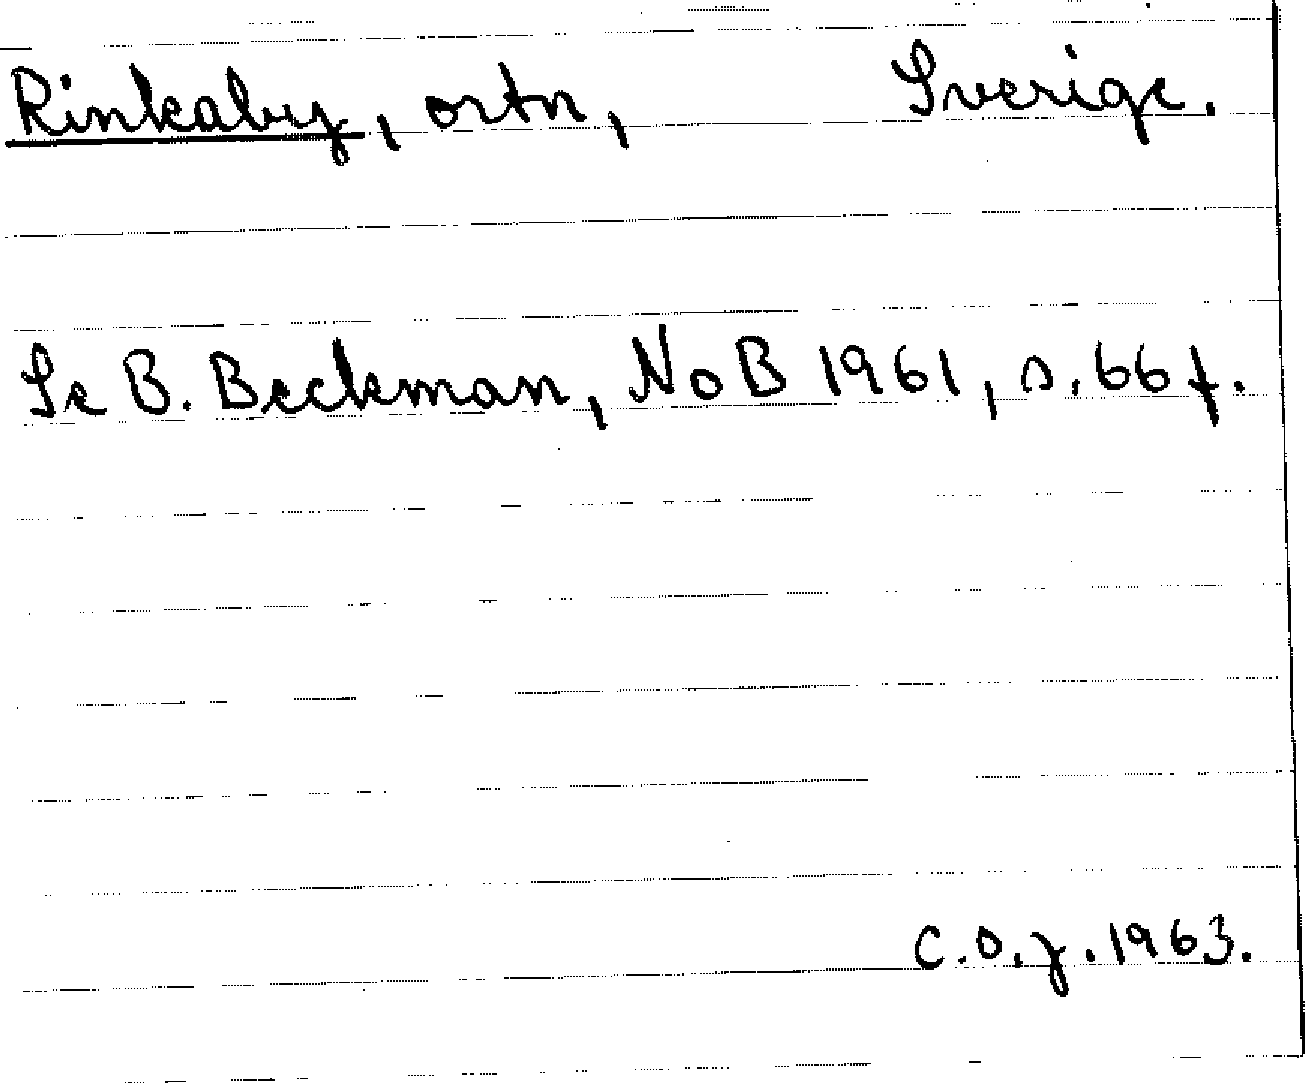 Rinkaby, ortn, Sverige.
Se B. Beckman, NoB 1961, s. 66 f.
C.O.J. 1963.